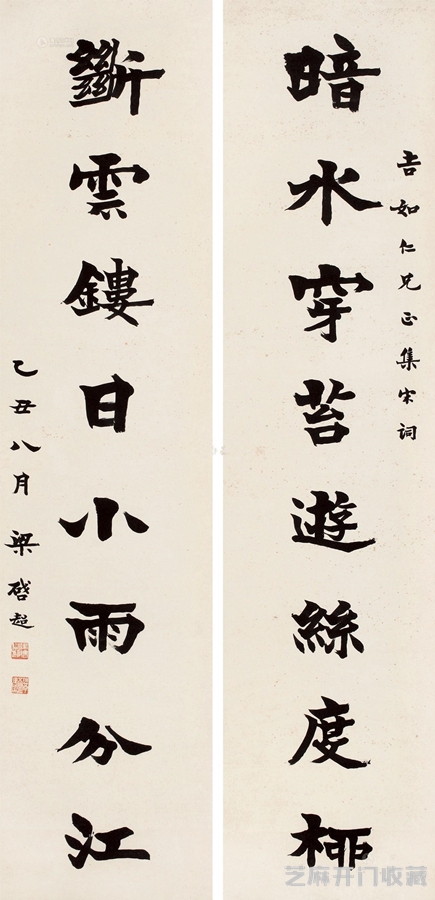 吉如仁兄正集宋詞
暗水穿苔遊絲度柳
斷雲鏤日小雨分江
乙丑八月梁啓超
芝麻开门收藏